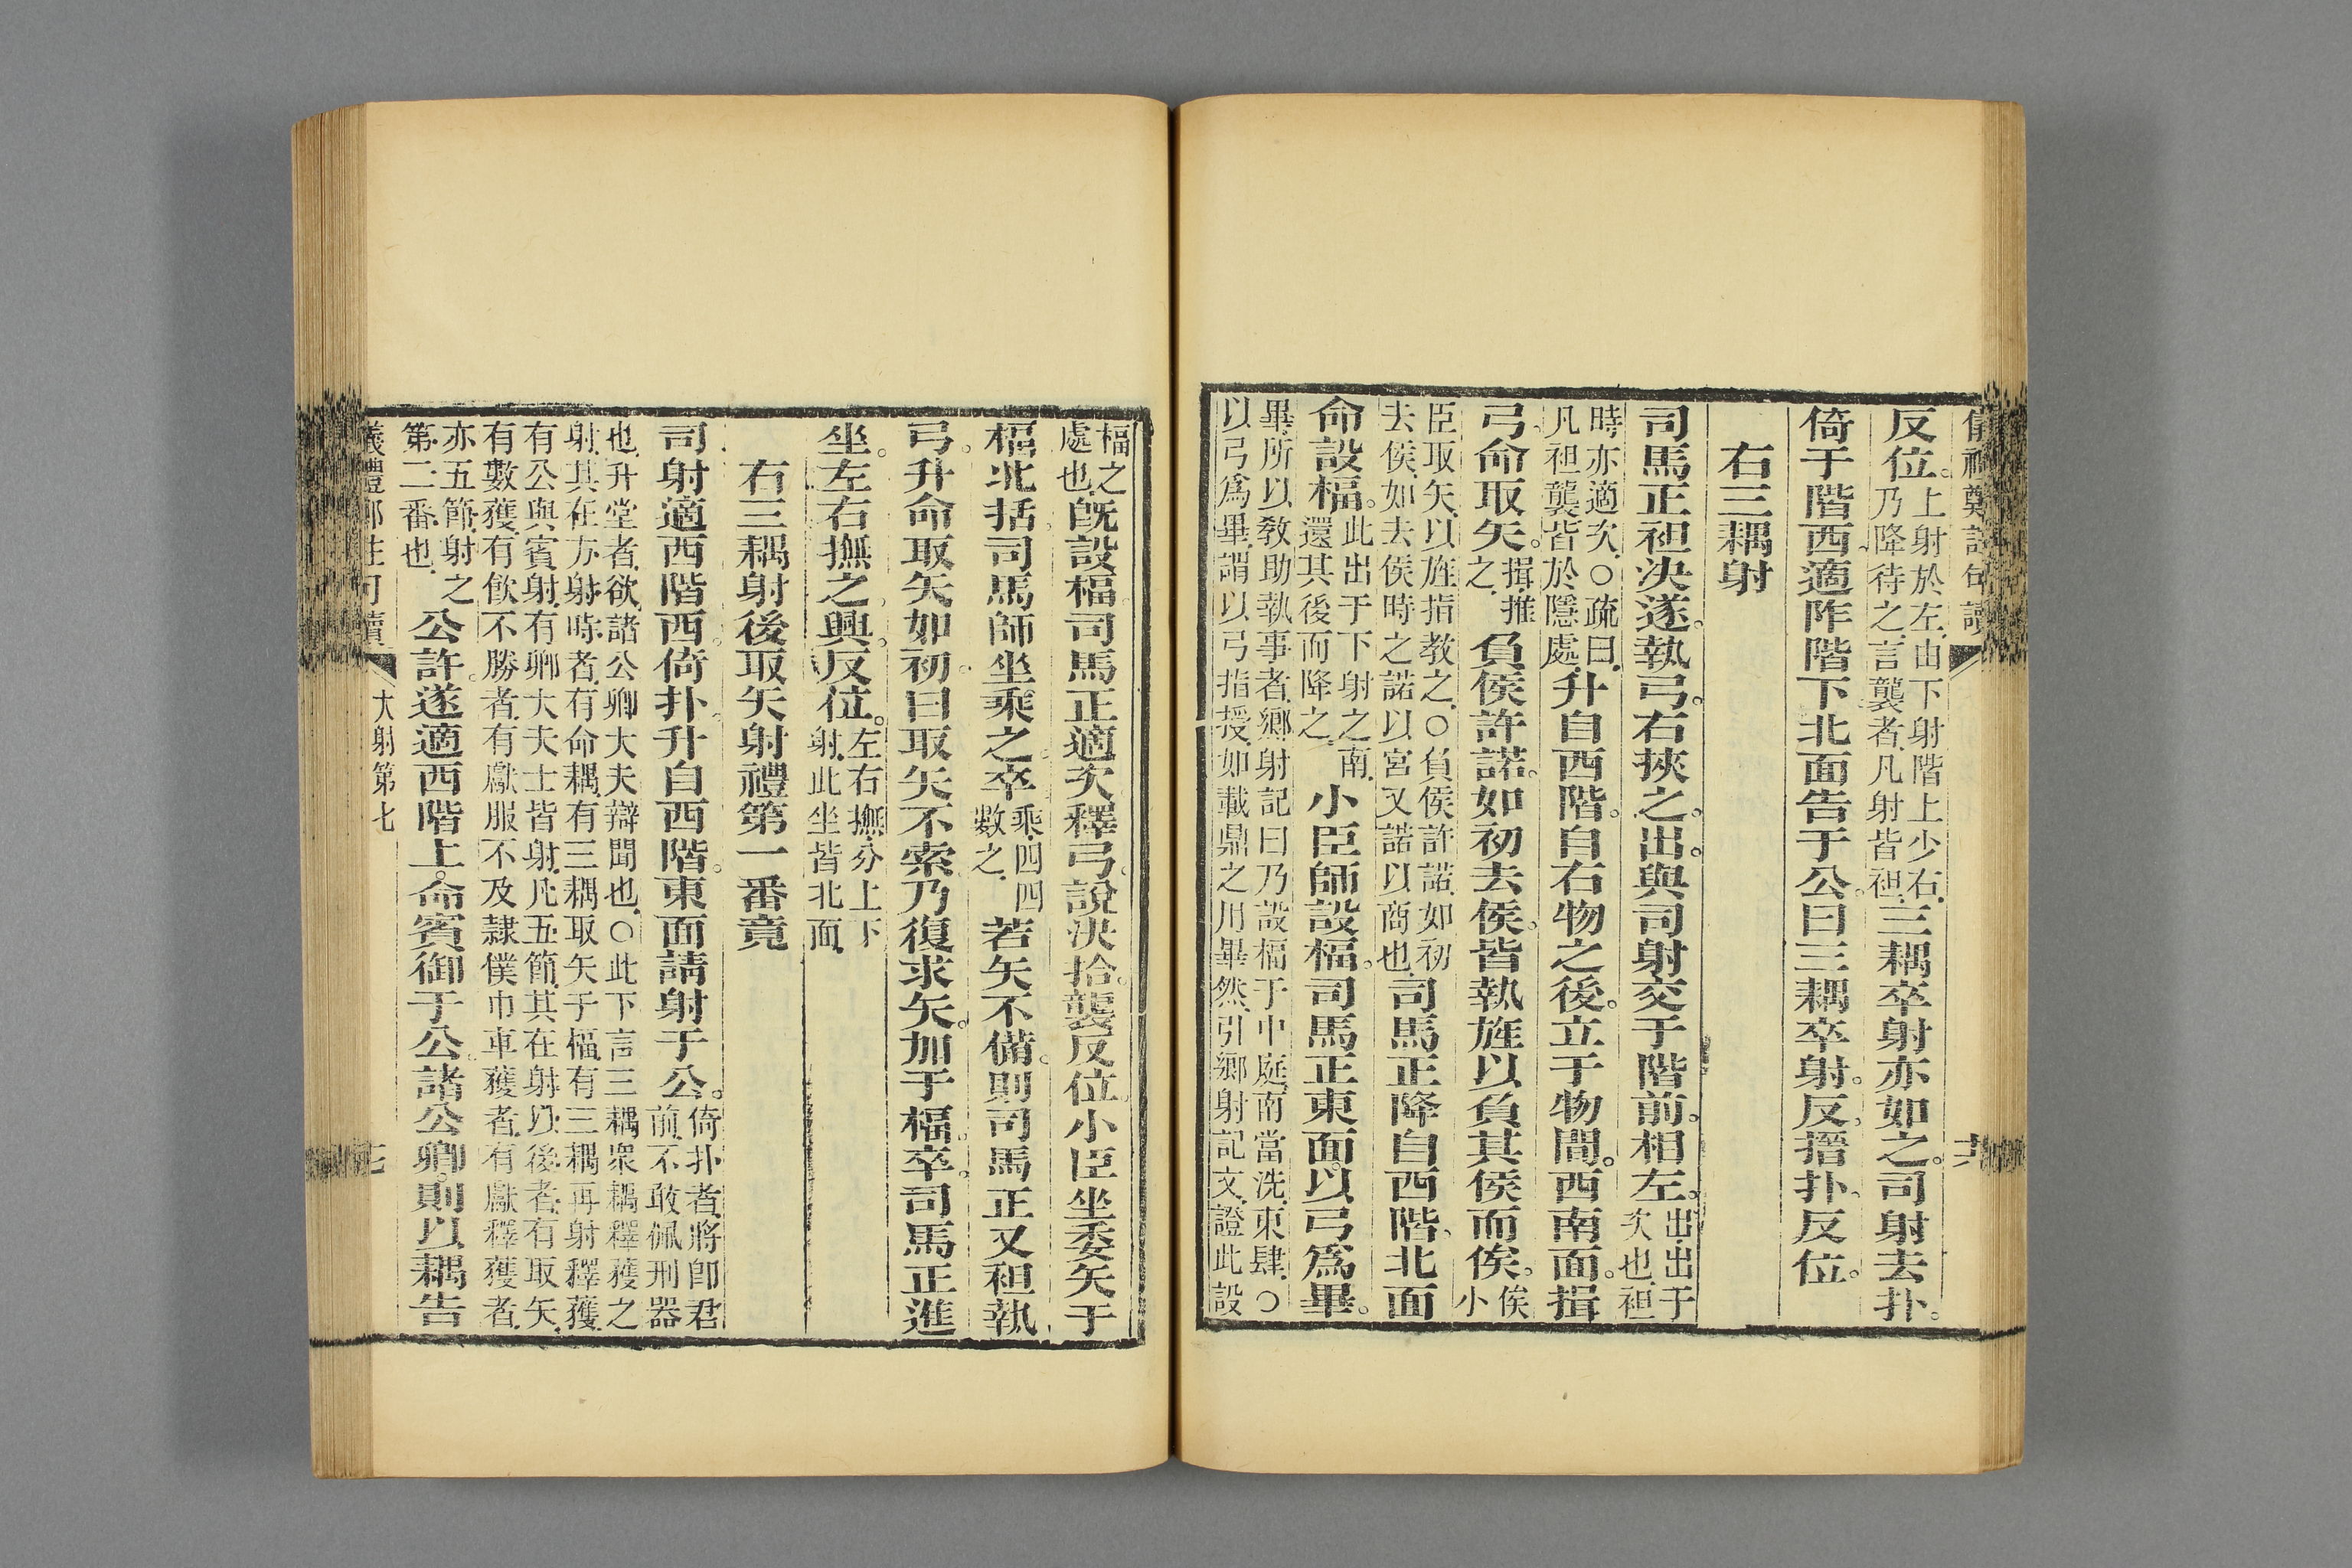 儀禮鄭註句讀
反位。上射於左。由下射階上少右。乃降待之。言襲者。凡射皆袒。三耦卒射亦如之。司射去扑。
倚于階西。適阼階下北面告于公。曰三耦卒射。反。搢扑。反位。
右三耦射
司馬正袒決遂。執弓。右挾之。出。與司射交于階前。相左。出。出于次也。袒
時亦適次。○疏曰。凡袒襲皆於隱處。升自西階。自右物之後。立于物閒。西南面。揖
弓。命取矢。揖。推之。負侯許諾。如初去侯。皆執旌以負其侯而俟。俟小
臣取矢。以旌指教之。○負侯許諾。如初去侯。如去侯時之諾以宮又諾以商也。司馬正降自西階。北面
命設楅。此出于下射之南。還其後而降之。小臣師設楅。司馬正東面。以弓爲畢。
畢。所以教助執事者。鄉射記曰乃設楅于中庭。南當洗。東肆。○
以弓爲畢。謂以弓指授。如載鼎之用畢然。引鄉射記文。證此設
楅之處也。旣設楅。司馬正適次。釋弓。說決拾。襲。反位。小臣坐委矢于
楅。北括。司馬師坐乘之。卒。乘。四四數之。若矢不備。則司馬正又袒執
弓。升命取矢如初。曰取矢不索。乃復求矢。加于楅。卒。司馬正進
坐。左右撫之。興。反位。左右撫。分上下射。此坐皆北面。
右三耦射後取矢射禮第一番竟
司射適西階西。倚扑。升自西階。東面請射于公。倚扑者。將卽君前。不敢佩刑器
也。升堂者。欲諸公卿大夫辯聞也。○此下言三耦衆耦釋獲之
射。其在方射時者。有命耦。有三耦取矢于楅。有三耦再射釋獲。
有公與賓射。有卿大夫士皆射。凡五節。其在射以後者。有取矢。
有數獲。有飮不勝者。有獻服不及隸僕巾車獲者。有獻釋獲者。
亦五節。射之第二番也。公許。遂適西階上。命賓御于公。諸公卿。則以耦告
大射第七